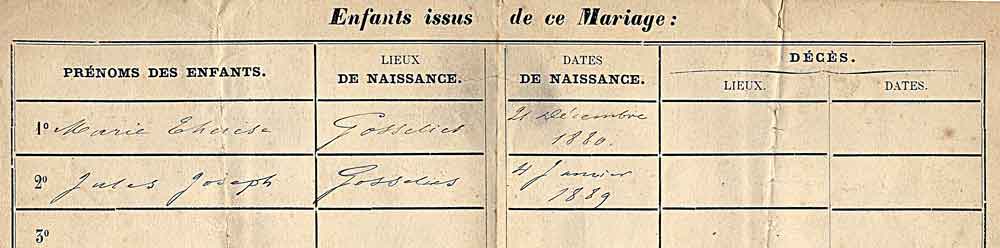 Enfants issus de ce Mariage:
PRÉNOMS DES ENFANTS.
LIEUX
DE NAISSANCE.
DATES
DE NAISSANCE.
DÉCÈS.
LIEUX.
DATES.
1º Marie Therèse
Gosselies
21 Décembre
1880.
2º Jules Joseph
Gosselies
4 Janvier
1889
3º